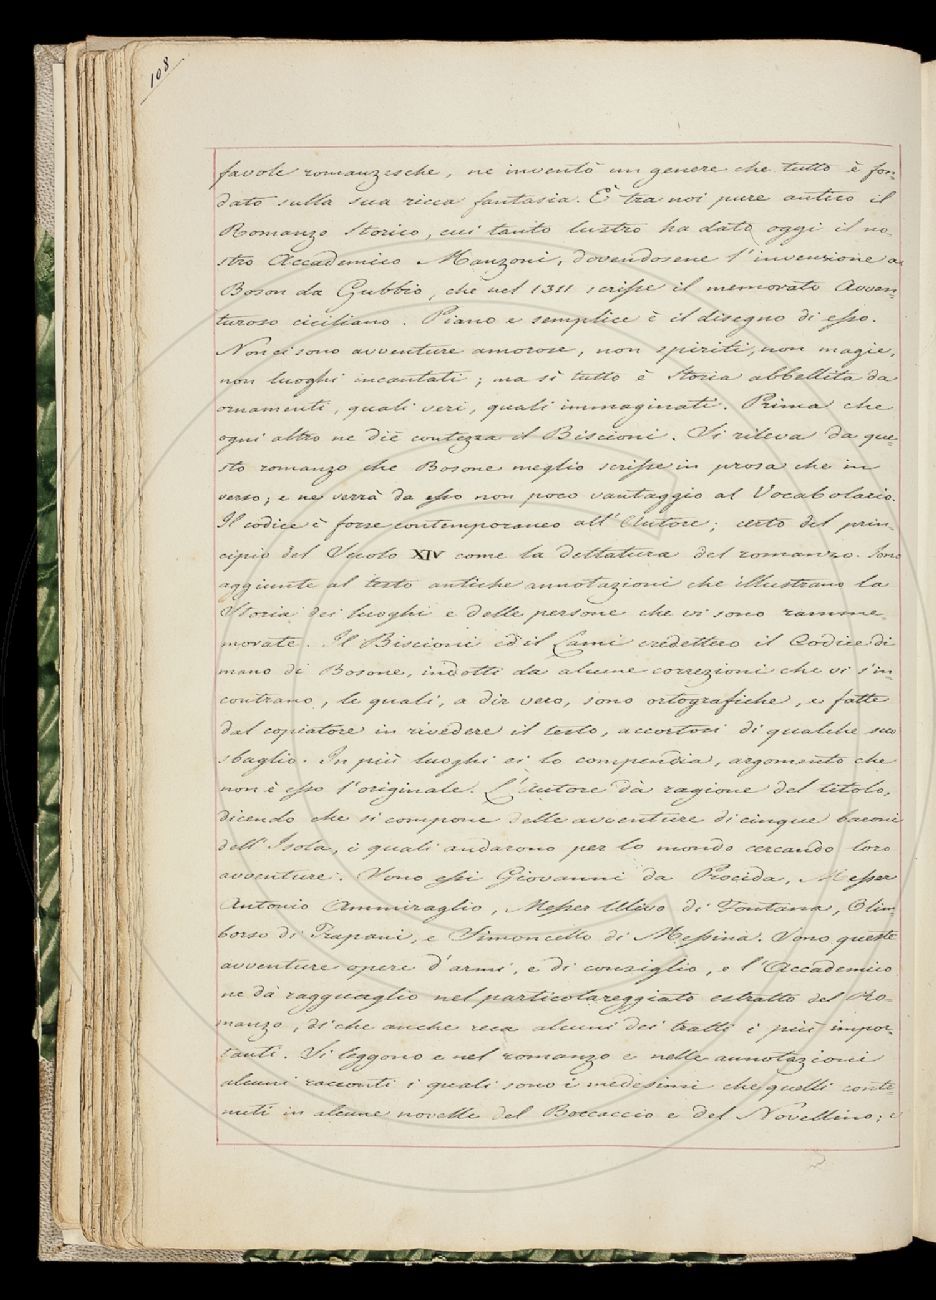 108
favole romanzesche, ne inventò un genere che tutto è fon-
dato sulla sua ricca fantasia. È tra noi pure antico il
Romanzo Storico, cui tanto lustro ha dato oggi il no-
stro Accademico Manzoni, dovendosene l'invenzione a
Boson da Gubbio, che nel 1311 scrisse il memorato Avven-
turoso ciciliano. Piano e semplice è il disegno di esso.
Non ci sono avventure amorose, non spiriti, non magie,
non luoghi incantati; ma sì tutto è Storia abbellita da
ornamenti, quali veri, quali immaginati. Prima che
ogni altro ne diè contezza il Biscioni. Si rileva da que-
sto romanzo che Bosone meglio scrisse in prosa che in
verso; e ne verrà da esso non poco vantaggio al Vocabolario.
Il codice è forse contemporaneo all'Autore; certo del prin-
cipio del Secolo XIV come la dettatura del romanzo. Sono
aggiunte al testo antiche annotazioni che illustrano la
Storia dei luoghi e delle persone che vi sono ramme-
morate. Il Biscioni ed il Lami credettero il Codice di
mano di Bosone, indotti da alcune correzioni che vi s'in-
contrano, le quali, a dir vero, sono ortografiche, e fatte
dal copiatore in rivedere il testo, accortosi di qualche suo
sbaglio. In più luoghi ei lo compendia, argomento che
non è esso l'originale. L'Autore dà ragione del titolo,
dicendo che si compone delle avventure di cinque baroni
dell'Isola, i quali andarono per lo mondo cercando loro
avventure. Sono essi Giovanni da Procida, Messer
Antonio Ammiraglio, Messer Ulivo di Fontana, Olim-
borso di Trapani, e Simoncello di Messina. Sono queste
avventure opere d'armi, e di consiglio, e l'Accademico
ne dà ragguaglio nel particolareggiato estratto del Ro-
manzo, di che anche reca alcuni dei tratti i più impor-
tanti. Si leggono e nel romanzo e nelle annotazioni
alcuni racconti i quali sono i medesimi che quelli conte-
nuti in alcune novelle del Boccaccio e del Novellino; e